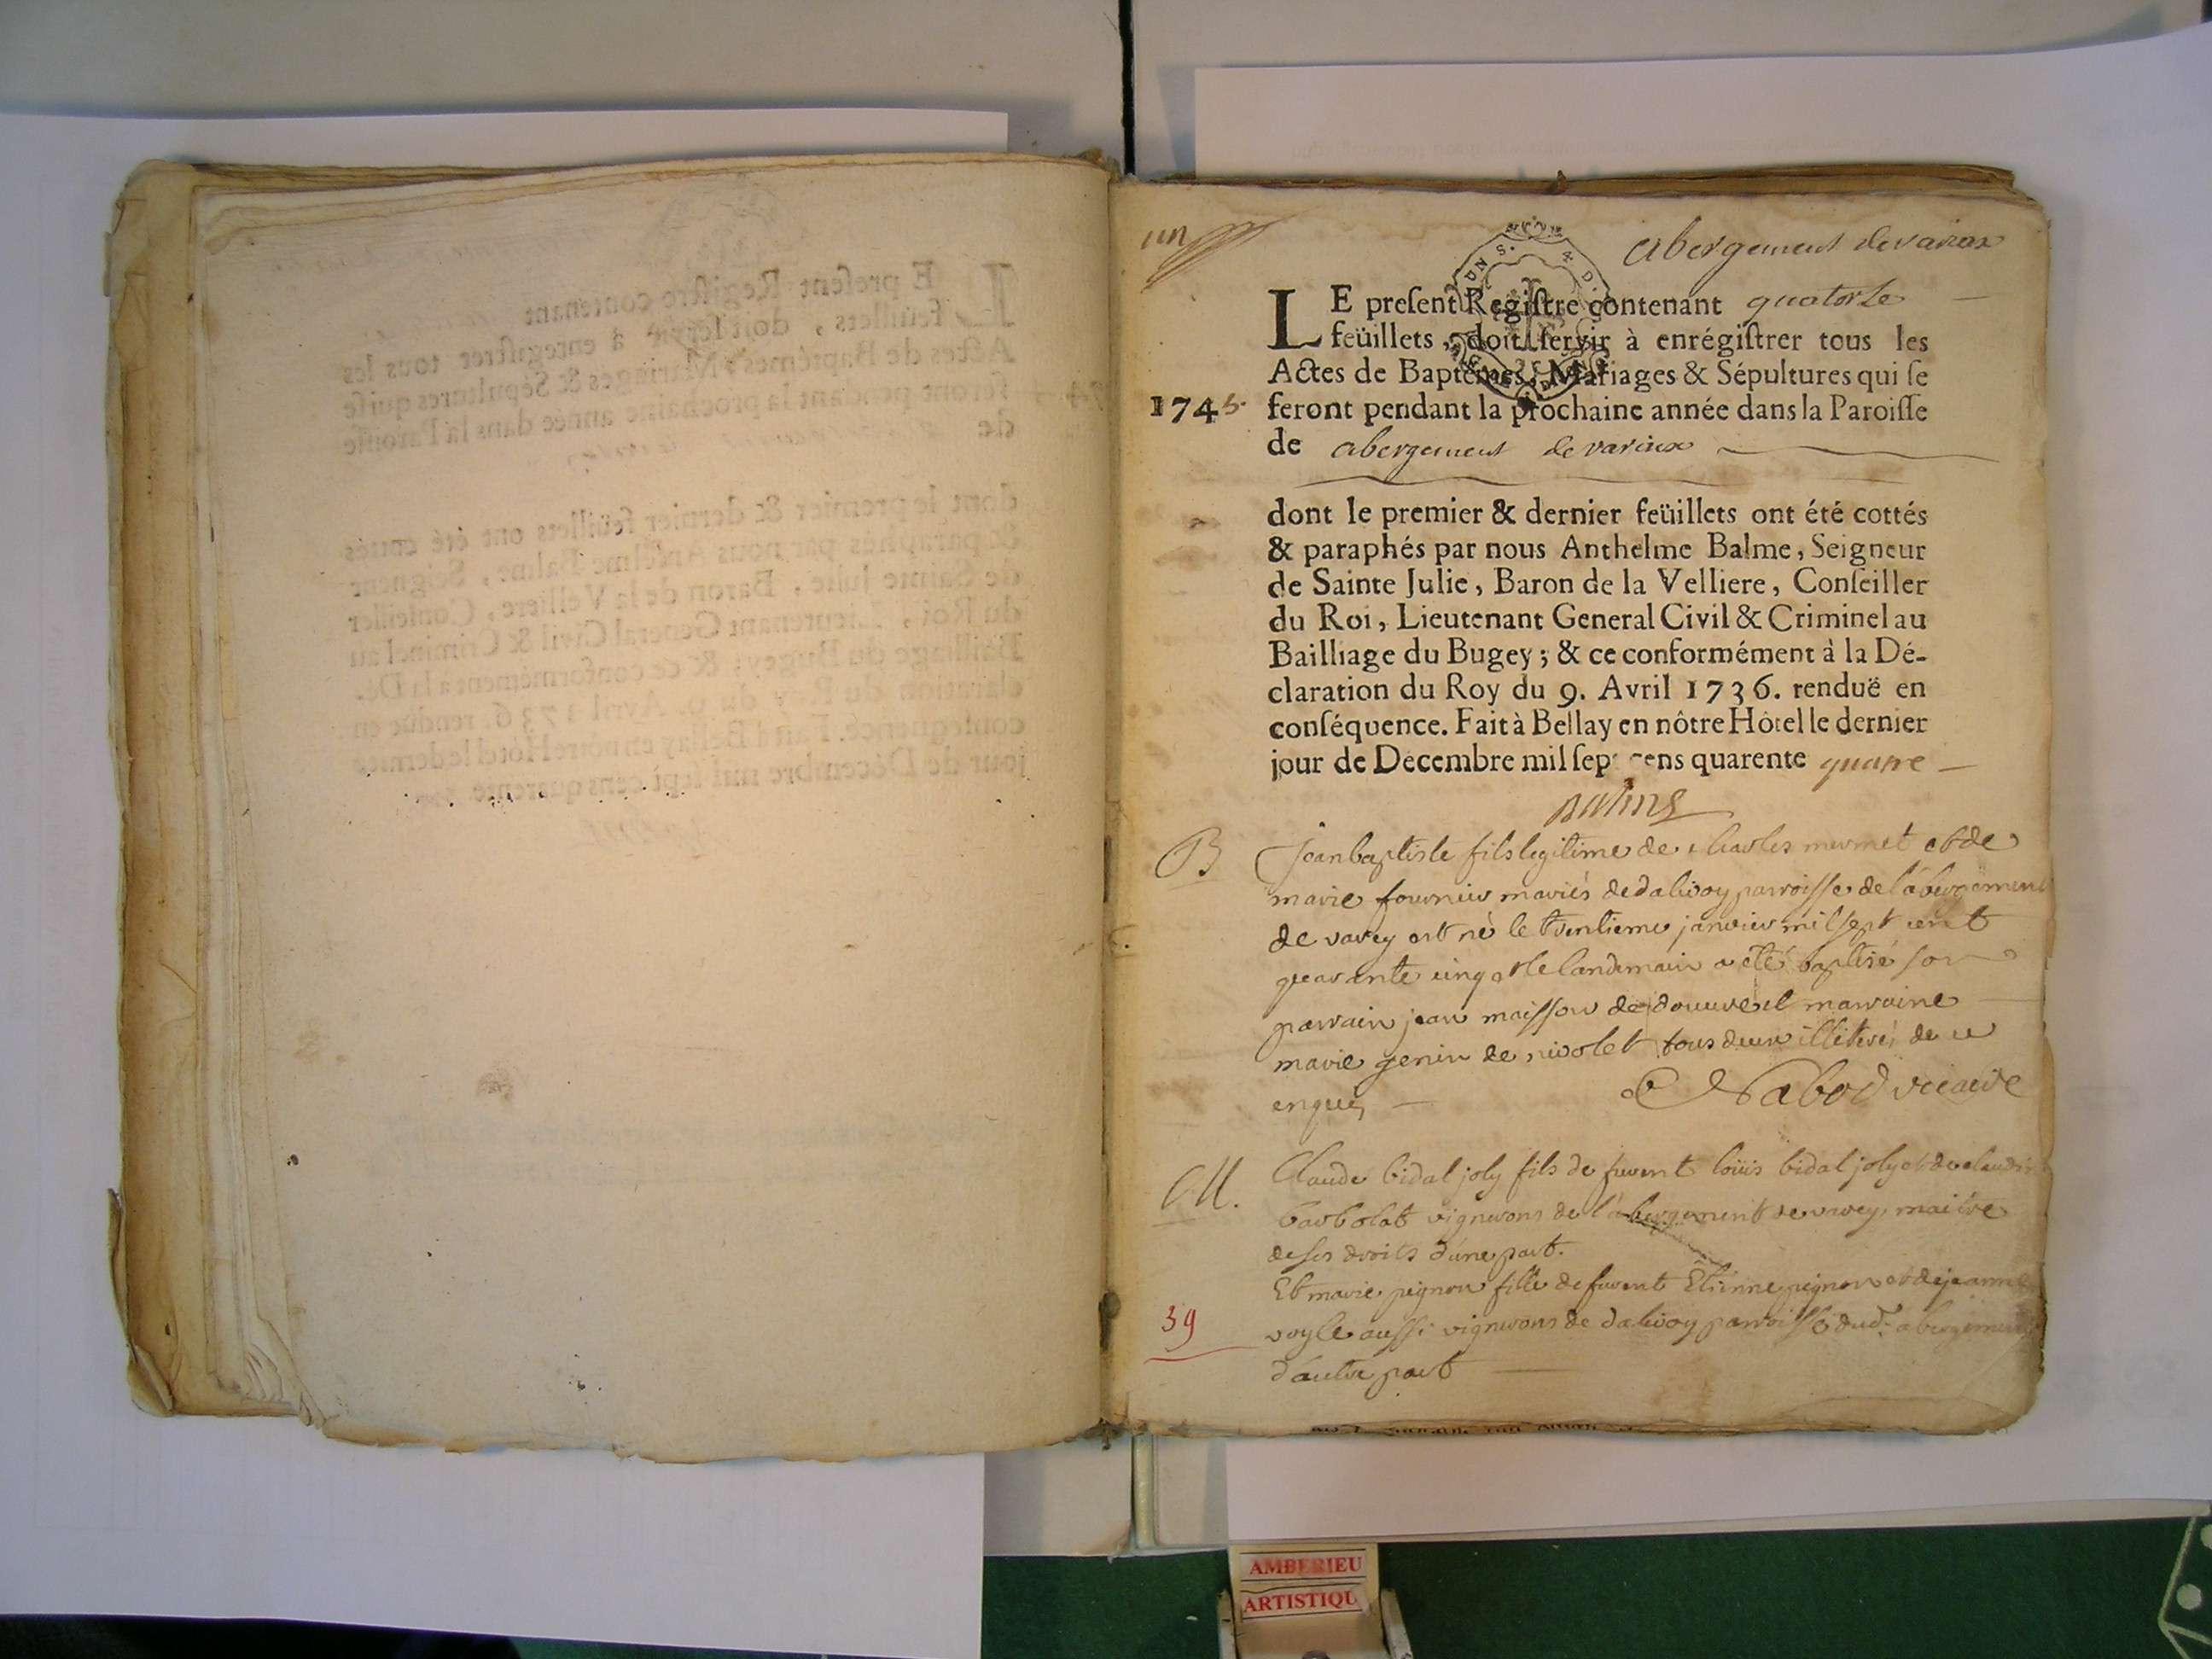 un
abergement devaraix
LE preſent Regiſtre contenant quatorze
feüillets, doit ſervir à enrégiſtrer tous les
Actes de Baptêmes, Mariages & Sépultures qui ſe
1745. feront pendant la prochaine année dans la Paroiſſe
de abergement devariux
dont le premier & dernier feüillets ont été cottés
& paraphés par nous Anthelme Balme, Seigneur
de Sainte Julie, Baron de la Velliere, Conſeiller
du Roi, Lieutenant General Civil & Criminel au
Bailliage du Bugey; & ce conformément à la Dé-
claration du Roy du 9. Avril 1736. renduë en
conſéquence. Fait à Bellay en nôtre Hôtel le dernier
jour de Décembre mil ſept cens quarente quatre
Balme
B
Jean baptiste fils legitime de charles mermet et de
marie fournier mariés de dalivoy parroisse de l'abergement
de varey est né le ventieme janvier mil sept cent
quarante cinq et le landemain a été baptisé son
parrain jean maisson de douvre et marraine
marie genin de nivolet tous deux illiterés de ce
enquis
Nabod vicaire
M.
Claude bidal joly fils de fuvent loüis bidal joly et de claudi
barbolat vignerons de l'abergement de varey, maitre
de ses droits d'une part.
Et marie pignon fille de fuvent Etienne pignon et de jeanne
voyle aussi vignerons de dalivoy parroisse dud. abergement
39
d'autre part
AMBERIEU
ARTISTIQU